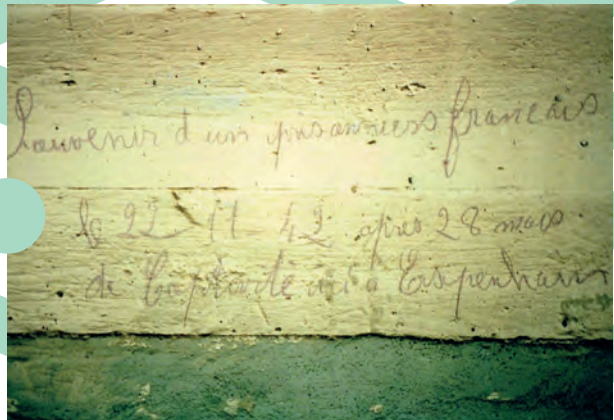 Souvenir d un prisonniers francais
le 22 11 42 après 28 mois
de Captivite ici à Espenhain